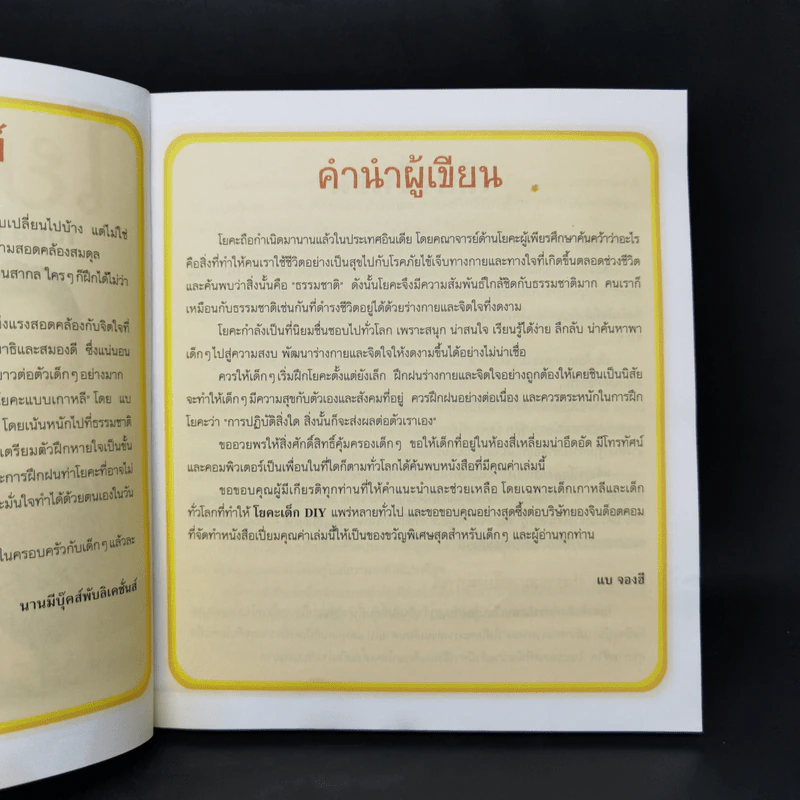 บเปลี่ยนไปบ้าง แต่ไม่ใช่
ามสอดคล้องสมดุล
นสากล ใครๆ ก็ฝึกได้ไม่ว่า
งแรงสอดคล้องกับจิตใจที่
าธิและสมองดี ซึ่งแน่นอน
าวต่อตัวเด็กๆ อย่างมาก
โยคะแบบเกาหลี" โดย แบ
โดยเน้นหนักไปที่ธรรมชาติ
เตรียมตัวฝึกหายใจเป็นขั้น
ะการฝึกฝนท่าโยคะที่อาจไม่
ะมั่นใจทำได้ด้วยตนเองในวัน
ในครอบครัวกับเด็กๆ แล้วละ
นานมีบุ๊คส์พับลิเคชั่นส์
คำนำผู้เขียน
โยคะถือกำเนิดมานานแล้วในประเทศอินเดีย โดยคณาจารย์ด้านโยคะผู้เพียรศึกษาค้นคว้าว่าอะไร
คือสิ่งที่ทำให้คนเราใช้ชีวิตอย่างเป็นสุขไปกับโรคภัยไข้เจ็บทางกายและทางใจที่เกิดขึ้นตลอดช่วงชีวิต
และค้นพบว่าสิ่งนั้นคือ "ธรรมชาติ" ดังนั้นโยคะจึงมีความสัมพันธ์ใกล้ชิดกับธรรมชาติมาก คนเราก็
เหมือนกับธรรมชาติเช่นกันที่ดำรงชีวิตอยู่ได้ด้วยร่างกายและจิตใจที่งดงาม
โยคะกำลังเป็นที่นิยมชื่นชอบไปทั่วโลก เพราะสนุก น่าสนใจ เรียนรู้ได้ง่าย ลึกลับ น่าค้นหาพา
เด็กๆ ไปสู่ความสงบ พัฒนาร่างกายและจิตใจให้งดงามขึ้นได้อย่างไม่น่าเชื่อ
ควรให้เด็กๆ เริ่มฝึกโยคะตั้งแต่ยังเล็ก ฝึกฝนร่างกายและจิตใจอย่างถูกต้องให้เคยชินเป็นนิสัย
จะทำให้เด็กๆ มีความสุขกับตัวเองและสังคมที่อยู่ ควรฝึกฝนอย่างต่อเนื่อง และควรตระหนักในการฝึก
โยคะว่า "การปฏิบัติสิ่งใด สิ่งนั้นก็จะส่งผลต่อตัวเราเอง"
ขออวยพรให้สิ่งศักดิ์สิทธิ์คุ้มครองเด็กๆ ขอให้เด็กที่อยู่ในห้องสี่เหลี่ยมน่าอึดอัด มีโทรทัศน์
และคอมพิวเตอร์เป็นเพื่อนในที่ใดก็ตามทั่วโลกได้ค้นพบหนังสือที่มีคุณค่าเล่มนี้
ขอขอบคุณผู้มีเกียรติทุกท่านที่ให้คำแนะนำและช่วยเหลือ โดยเฉพาะเด็กเกาหลีและเด็ก
ทั่วโลกที่ทำให้ โยคะเด็ก DIY แพร่หลายทั่วไป และขอขอบคุณอย่างสุดซึ้งต่อบริษัทยองจินด็อตคอม
ที่จัดทำหนังสือเปี่ยมคุณค่าเล่มนี้ให้เป็นของขวัญพิเศษสุดสำหรับเด็กๆ และผู้อ่านทุกท่าน
แบ จองฮี